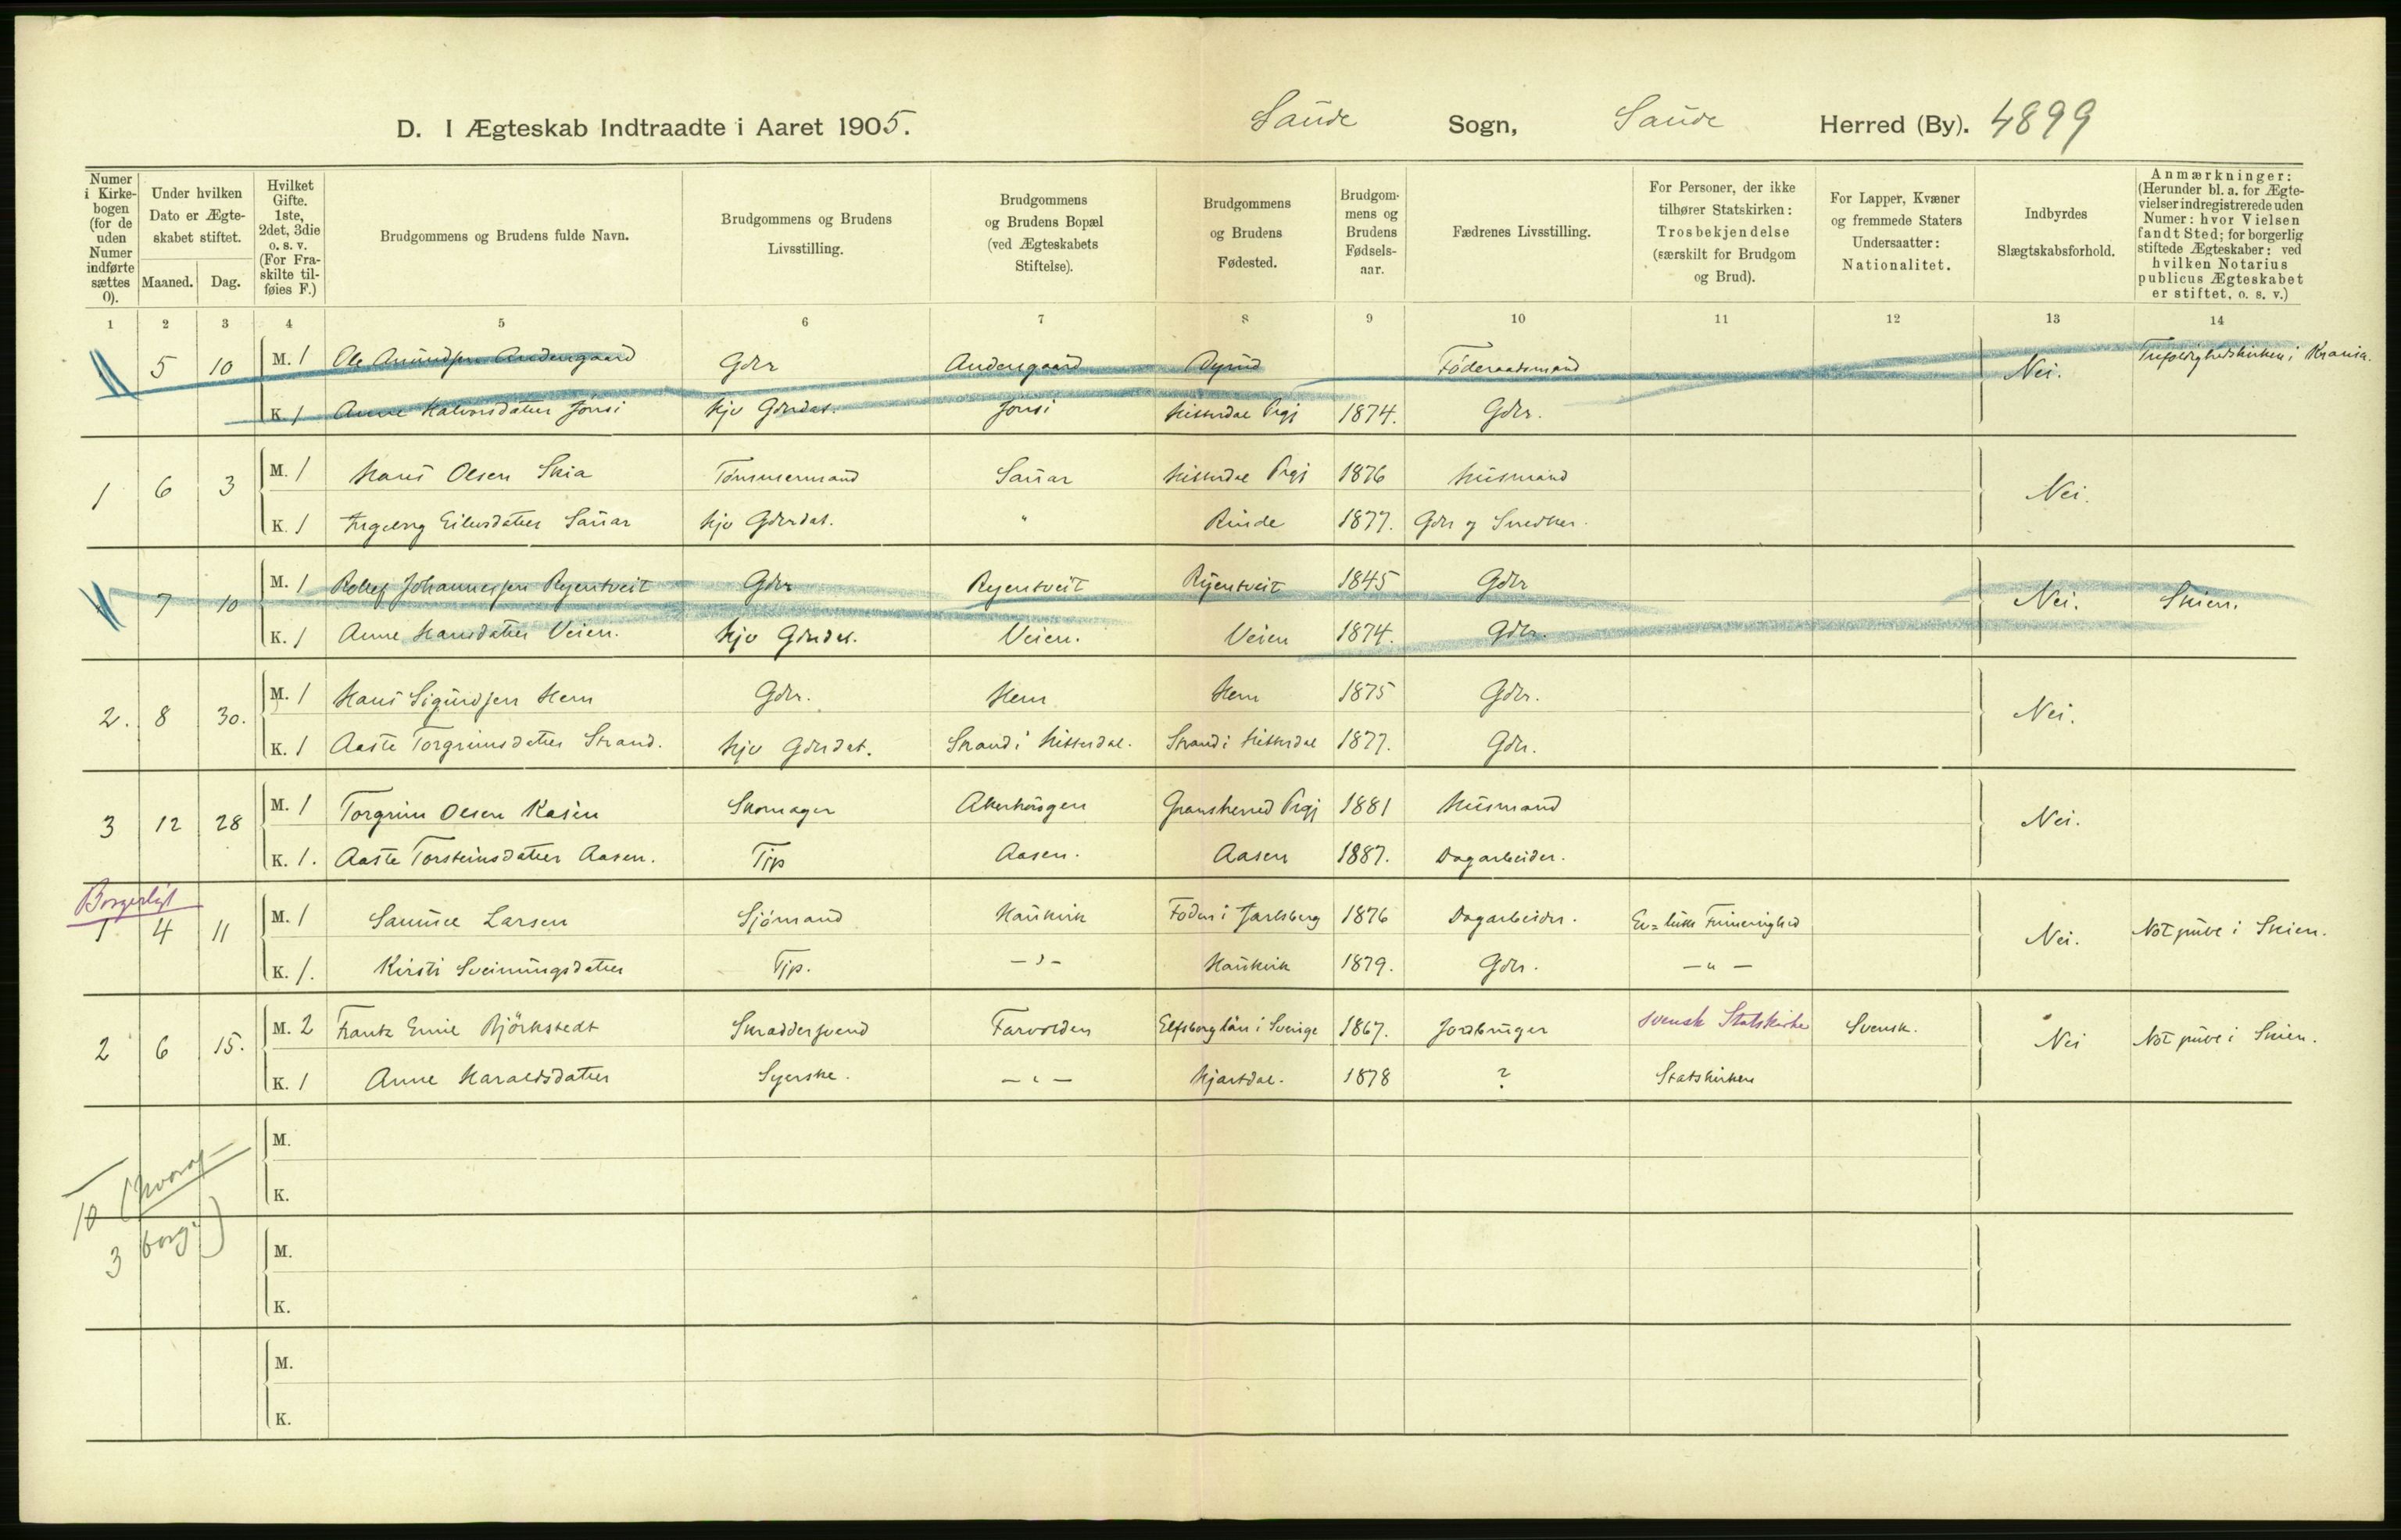 D. I Ægteskab Indtraadte i Aaret 1905. Saude Sogn, Saude Herred (By). 4899
Numer i Kirkebogen (for de uden Numer indførte sættes 0).
Under hvilken Dato er Ægteskabet stiftet.
Maaned. Dag.
Hvilket Gifte. 1ste, 2det, 3die o. s. v. (For Fraskilte tilføies F.)
Brudgommens og Brudens fulde Navn.
Brudgommens og Brudens Livsstilling.
Brudgommens og Brudens Bopæl (ved Ægteskabets Stiftelse).
Brudgommens og Brudens Fødested.
Brudgommens og Brudens Fødselsaar.
Fædrenes Livsstilling.
For Personer, der ikke tilhører Statskirken: Trosbekjendelse (særskilt for Brudgom og Brud).
For Lapper, Kvæner og fremmede Staters Undersaatter: Nationalitet.
Indbyrdes Slægtskabsforhold.
Anmærkninger: (Herunder bl. a. for Ægtevielser indregistrerede uden Numer: hvor Vielsen fandt Sted; for borgerlig stiftede Ægteskaber: ved hvilken Notarius publicus Ægteskabet er stiftet, o. s. v.)
1 2 3 4 5 6 7 8 9 10 11 12 13 14
5 10 M. 1 Ole Amundsen Andersgaard Gdr Andersgaard Føderaadsmand Nei. Trefoldighedskirken i Krania.
K. 1 Anne Halvorsdatter Jønsi hjv Gdrdat. Jønsi Hitterdal Prgj 1874. Gdr.
1 6 3 M. 1 Hans Olsen Skia Tømmermand Sauar Hitterdal Prgj 1876 Husmand Nei.
K. 1 Ingeborg Eilevsdatter Sauar hjv Gdrdat. " Rinde 1877. Gdr og Snedker.
7 10 M. 1 Rollef Johannessen Ryentveit Gdr Ryentveit Ryentveit 1845 Gdr Nei. Skien.
K. 1 Anne Hansdatter Veien. hjv Gdrdat. Veien. Veien 1874. Gdr.
2. 8 30. M. 1 Hans Sigurdsen Hem Gdr. Hem Hem 1875 Gdr. Nei.
K. 1 Aaste Torgrimsdatter Strand. hjv Gdrdat. Strand i Hitterdal. Strand i Hitterdal 1877. Gdr.
3 12 28 M. 1 Torgrim Olsen Kasin Skomager Akerhaugen Gransherred Prgj 1881 Husmand Nei.
K. 1. Aaste Torsteinsdatter Aasen. Tjp Aasen. Aasen 1887. Dagarbeider.
Borgerligt
1 4 11 M. 1 Samuel Larsen Sjømand Haukvik i Jarlsberg 1876 Dagarbeider. Ev=luth Frimenighed Nei. Not publ i Skien.
K. 1. Kirsti Sveinungsdatter Tjp. — " — Haukvik 1879. Gdr. — " —
2 6 15. M. 2 Frantz Emil Björkstedt Skræddersvend Farvolden Elfsborg län i Sverige 1867. Jordbruger svensk Statskirke Svensk. Nei Not publ i Skien.
K. 1 Anne Haraldsdatter Syerske. — " — Hjartdal. 1878 ? Statskirken
M.
K.
10 (hvoraf
3 borg.)
M.
K.
M.
K.